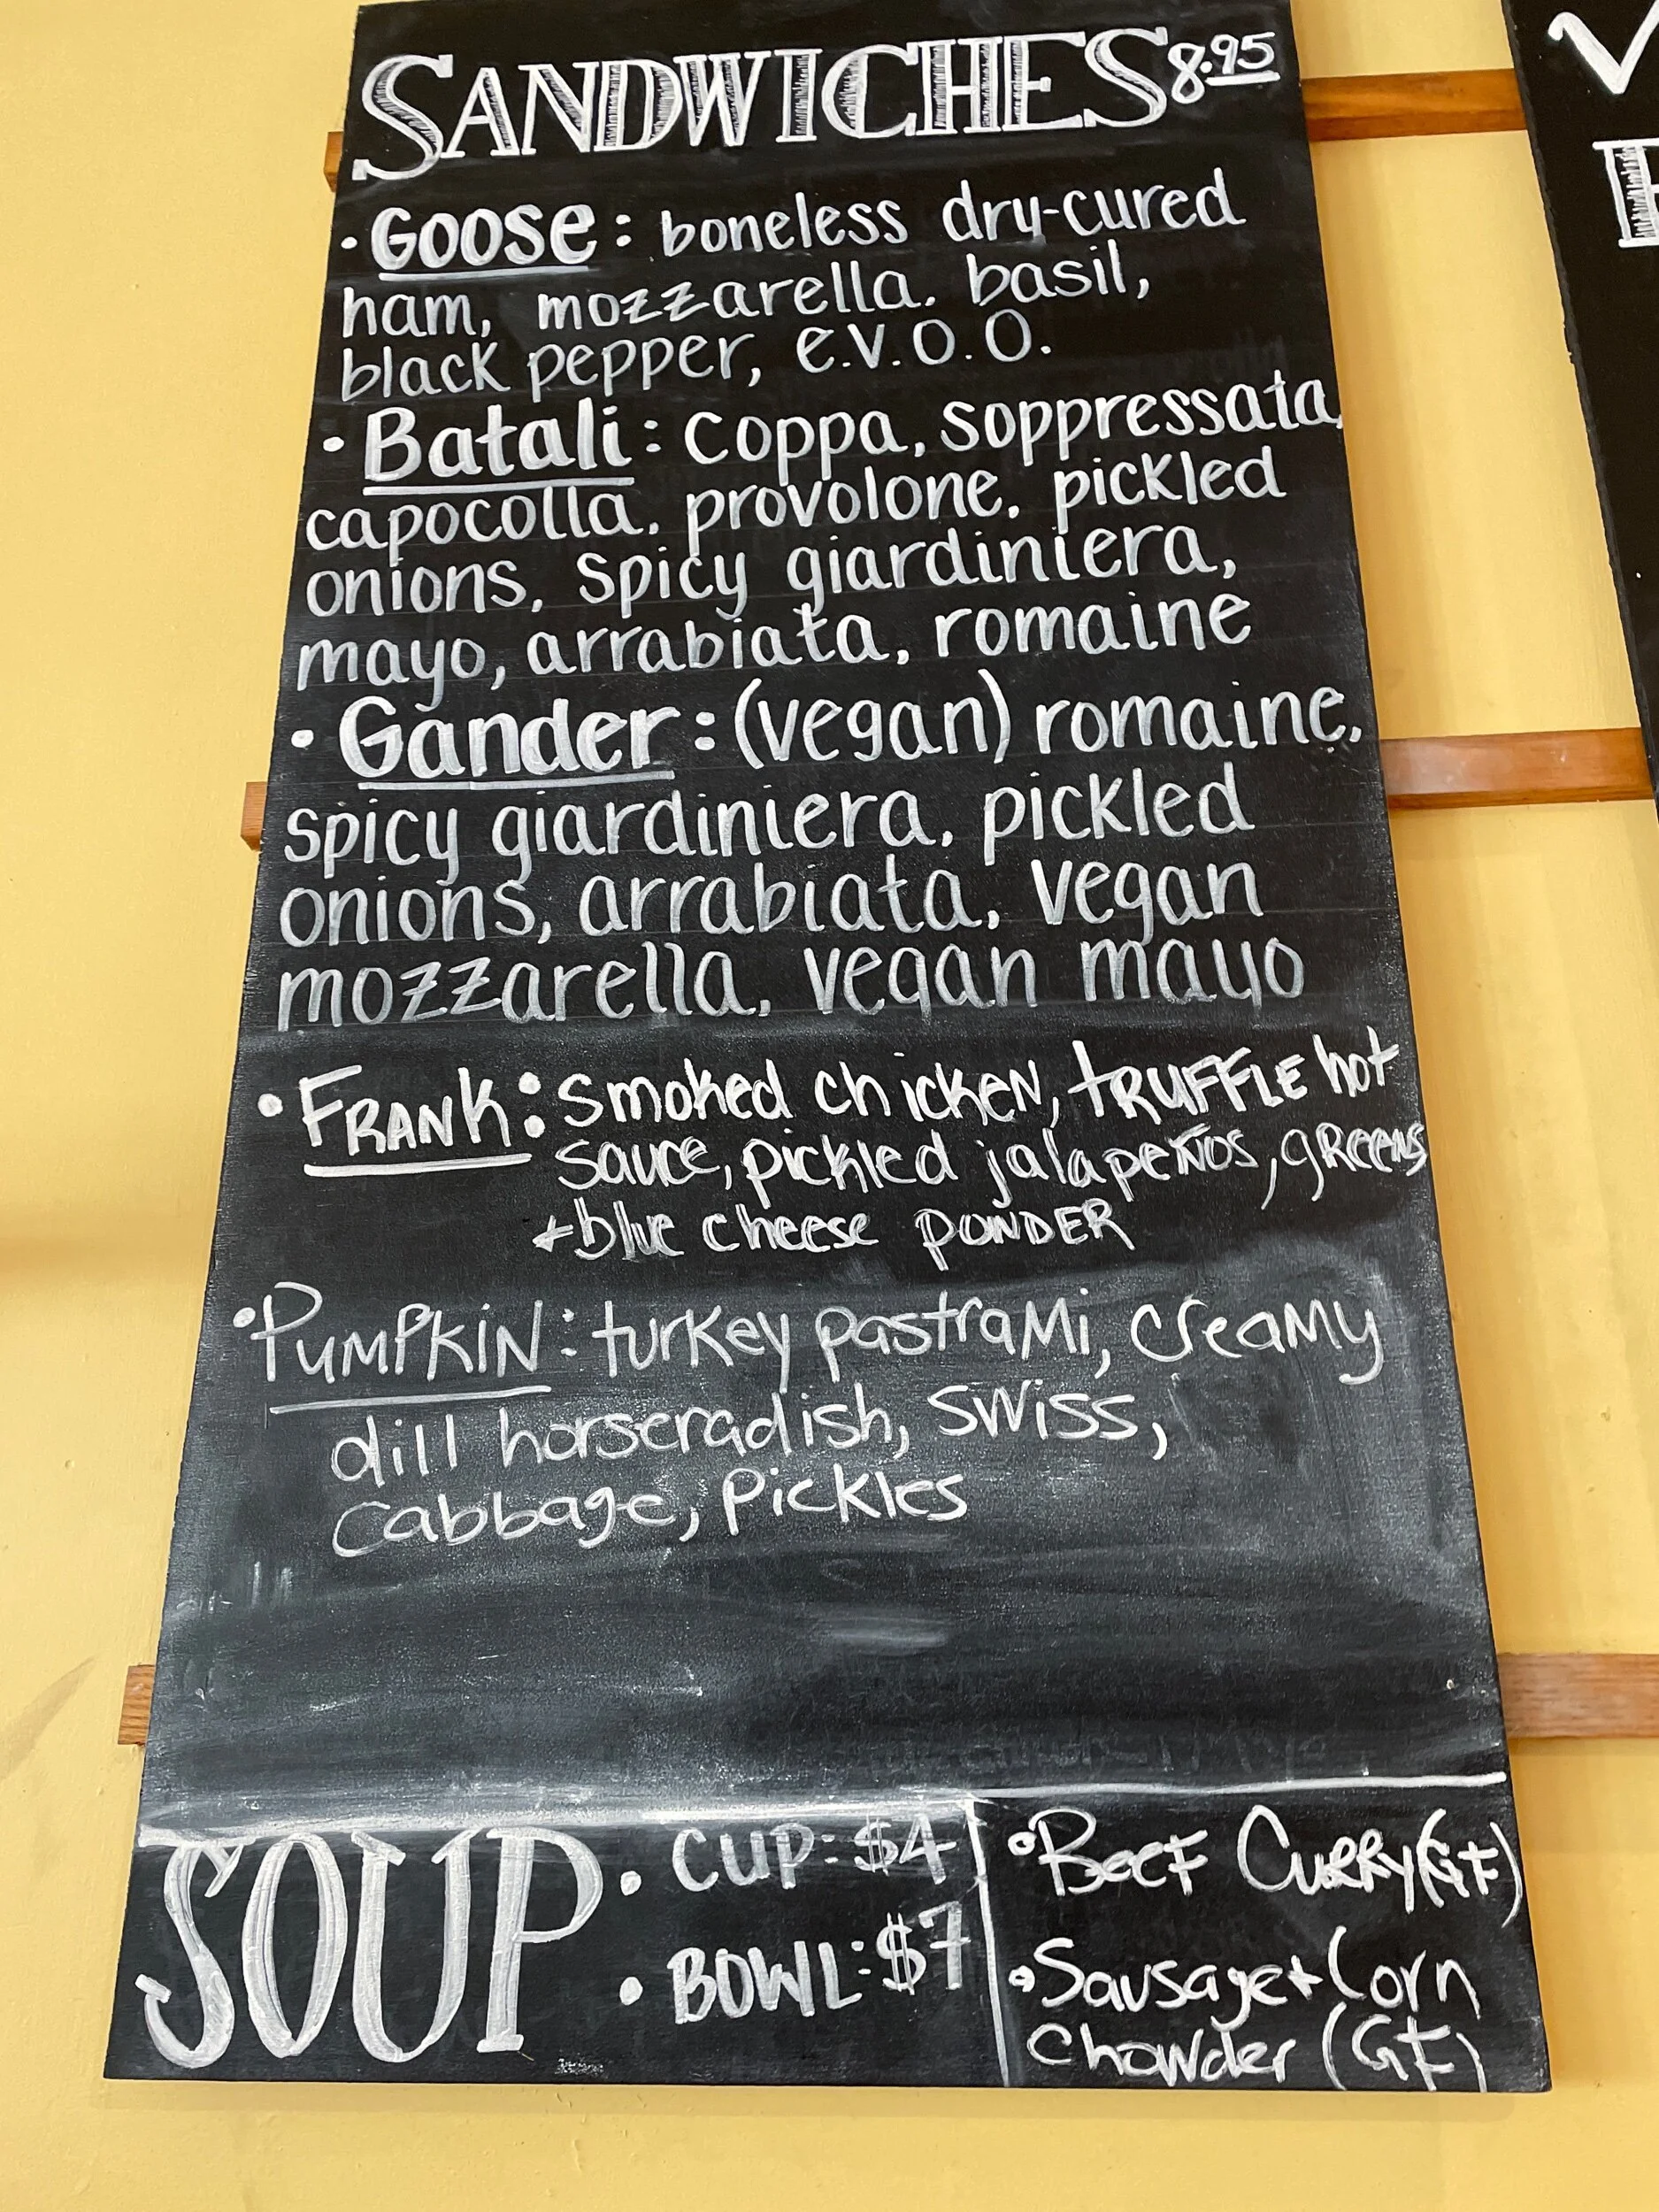 SANDWICHES 8.95
• GOOSE: boneless dry-cured
ham, mozzarella. basil,
black pepper, e.v.o.o.
• Batali: coppa, soppressata,
capocolla, provolone, pickled
onions, spicy giardiniera,
mayo, arrabiata, romaine
• Gander: (vegan) romaine,
spicy giardiniera, pickled
onions, arrabiata, vegan
mozzarella, vegan mayo
• FRANK: smoked chicken, tRUFFLE hot
sauce, pickled jalapeños, greens
+ blue cheese POWDER
• PUMPKIN: turkey pastrami, creamy
dill horseradish, swiss,
cabbage, Pickles
SOUP
• CUP: $4
• BOWL: $7
• Beef Curry (GF)
• Sausage + Corn
Chowder (GF)